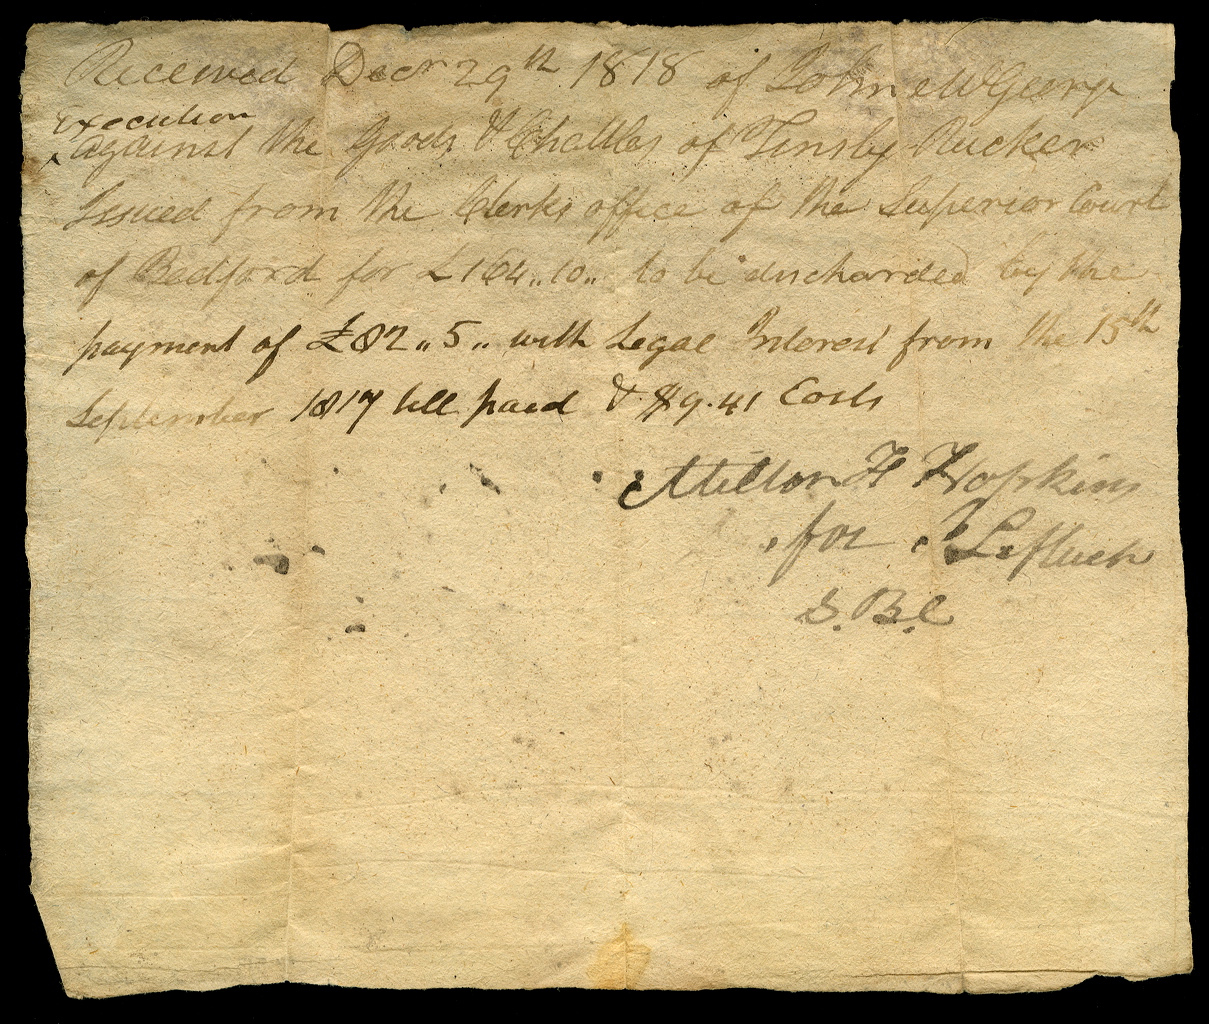 Received Decr 29th 1818 of John W George
Execution
against the goods & Chattles of Tinsly Rucker
Issued from the Clerks office of the Superior Court
of Bedford for £164,,10,, to be discharded by the
payment of £82,,5,, with Legal Interest from the 15th
September 1817 till paid & $9.41 Costs
Milton H Hopkins
for
S. B. C